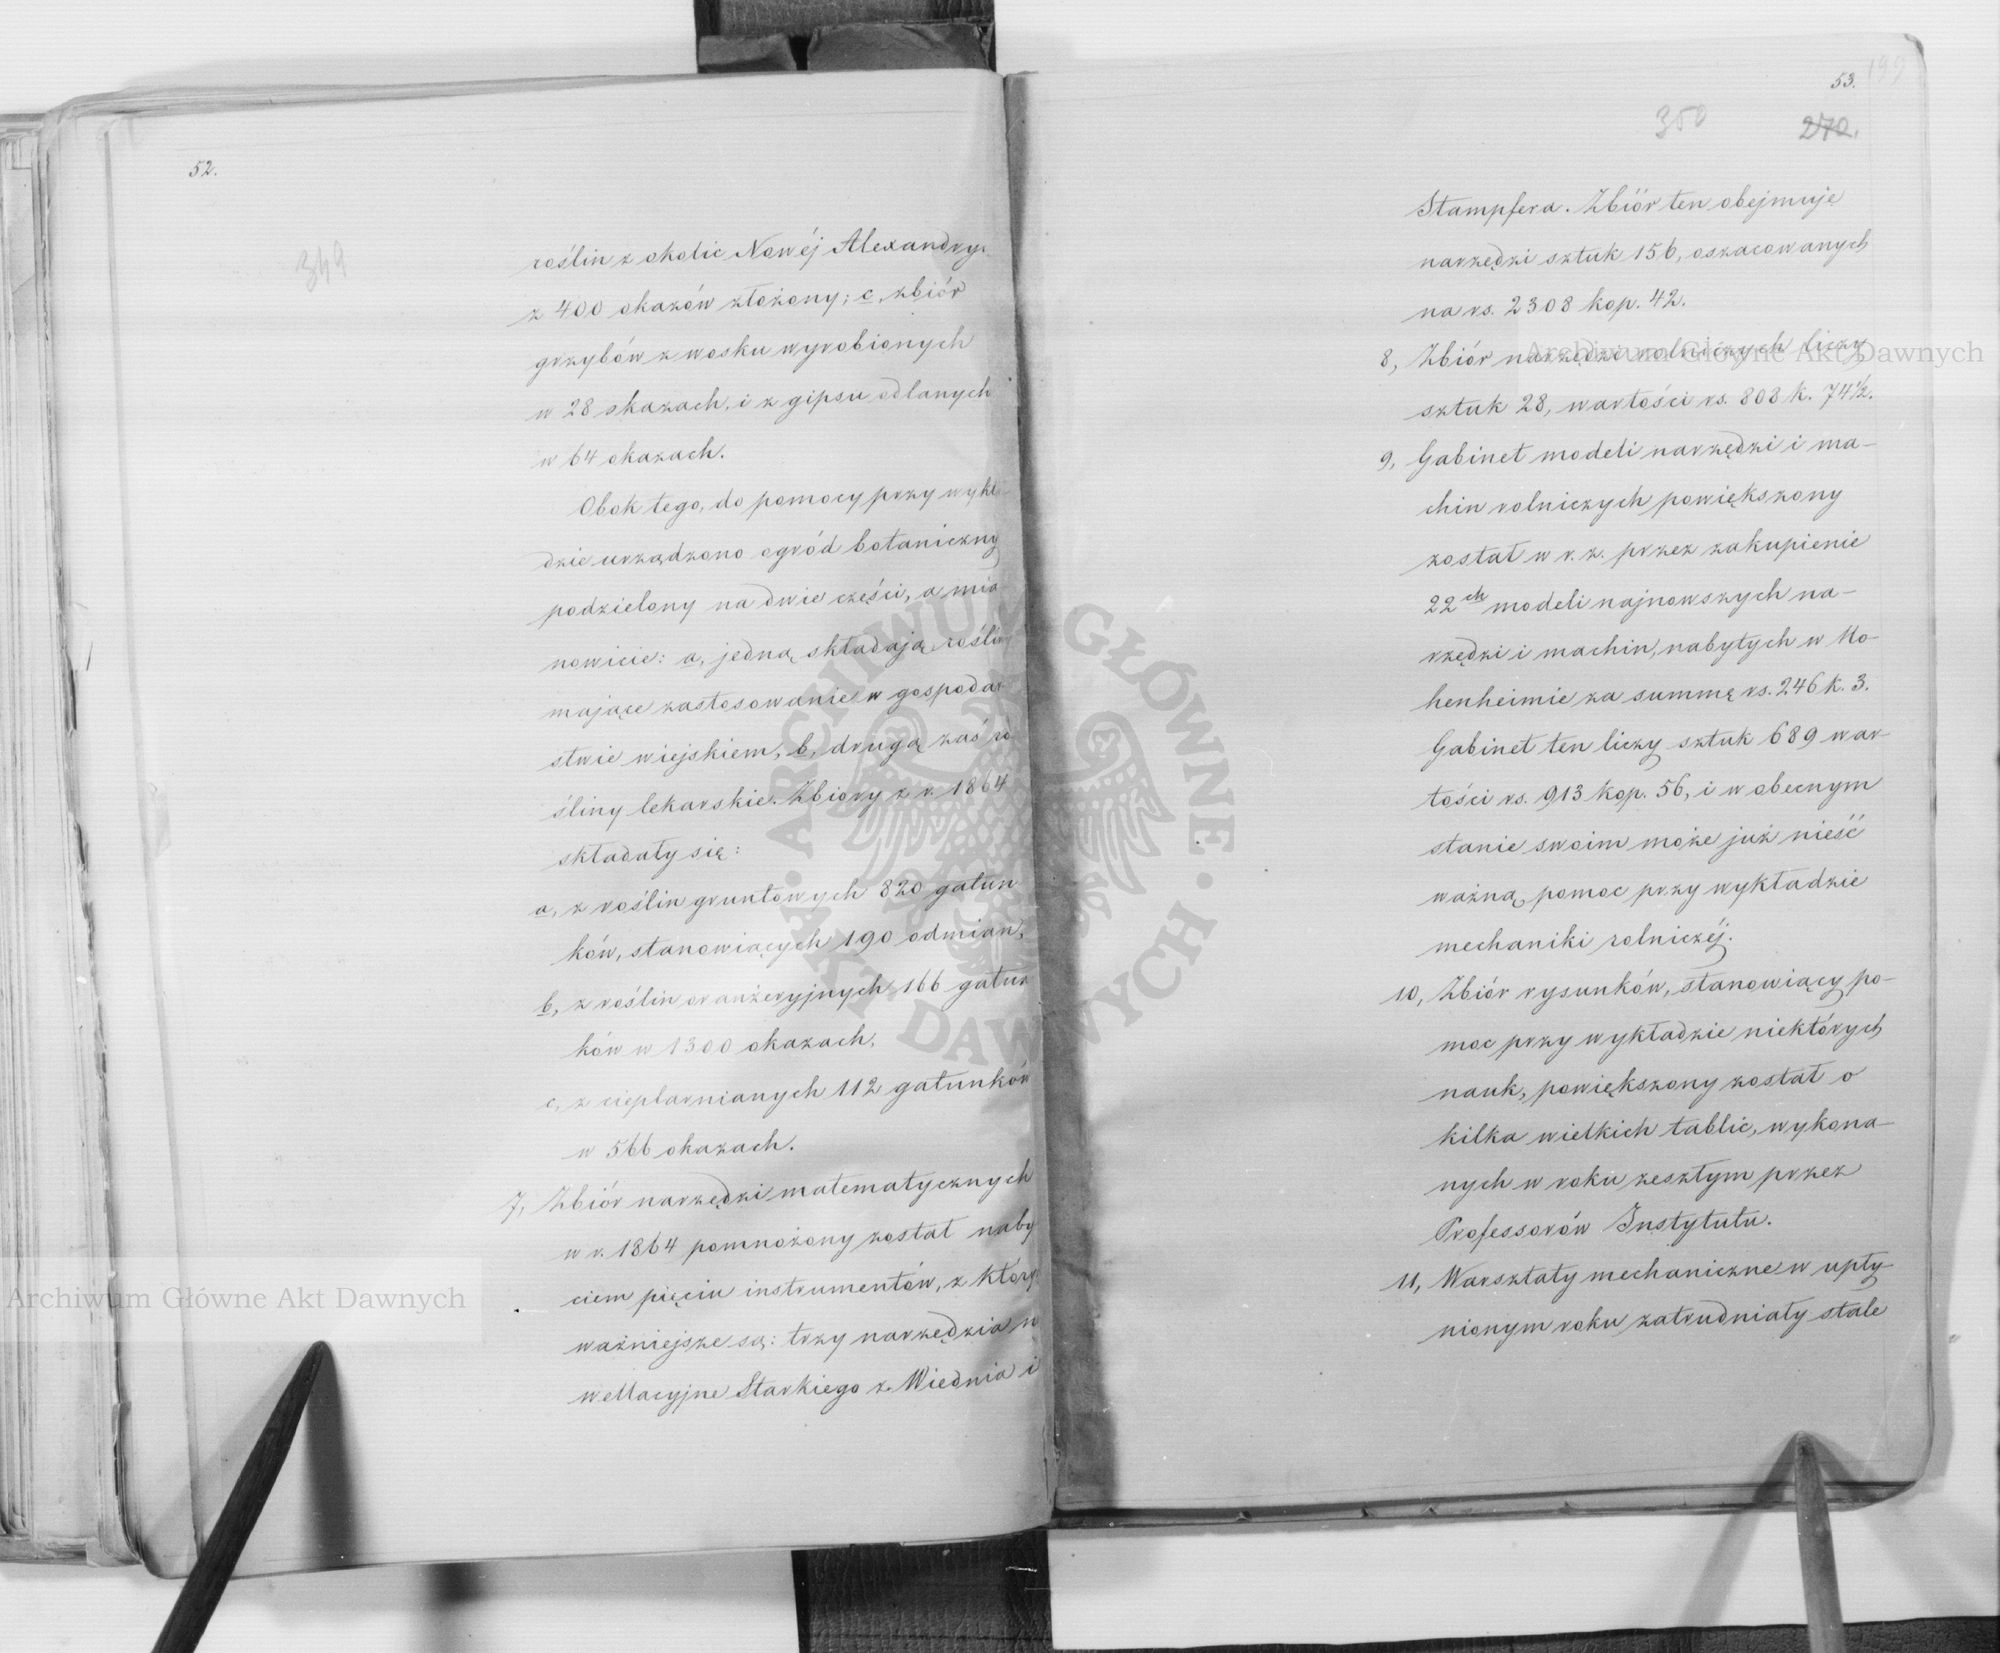 52.
349
roślin z okolic Nowéj Alexandryi
z 400 okazów złożony; c, zbiór
grzybów z wosku wyrobionych
w 28 okazach, i z gipsu odlanych
w 64 okazach.
Obok tego, do pomocy przy wykła-
dzie urządzono ogród botaniczny
podzielony na dwie części, a mia
nowicie: a, jedną składają rośliny
mające zastosowanie w gospodar
stwie wiejskiem, b, drugą zaś ro
śliny lekarskie. Zbiory z r. 1864
składały się:
a, z roślin gruntowych 820 gatun
ków, stanowiących 190 odmian,
b, z roślin oranżeryjnych 166 gatun
ków w 1300 okazach,
c, z cieplarnianych 112 gatunków
w 566 okazach.
7, Zbiór narzędzi matematycznych
w r. 1864 pomnożony został naby
ciem pięciu instrumentów, z który
ważniejsze są: trzy narzędzia ni
wellacyjne Starkiego z Wiednia i
53.
199
350
270.
Stampfera. Zbiór ten obejmuje
narzędzi sztuk 156, oszacowanych
na rs. 2308 kop. 42.
8, Zbiór narzędzi rolniczych liczy
sztuk 28, wartości rs. 808 k. 74½.
9, Gabinet modeli narzędzi i ma-
chin rolniczych powiększony
został w r. z. przez zakupienie
22ch modeli najnowszych na-
rzędzi i machin, nabytych w Ho-
henheimie za summę rs. 246 k. 3.
Gabinet ten liczy sztuk 689 war-
tości rs. 913 kop. 56, i w obecnym
stanie swoim może już nieść
ważną pomoc przy wykładzie
mechaniki rolniczéj.
10, Zbiór rysunków, stanowiący po-
moc przy wykładzie niektórych
nauk, powiększony został o
kilka wielkich tablic, wykona-
nych w roku zeszłym przez
Professorów Instytutu.
11, Warsztaty mechaniczne w upły-
nionym roku zatrudniały stale
Archiwum Główne Akt Dawnych
Archiwum Główne Akt Dawnych
ARCHIWUM GŁÓWNE · AKT DAWNYCH ·